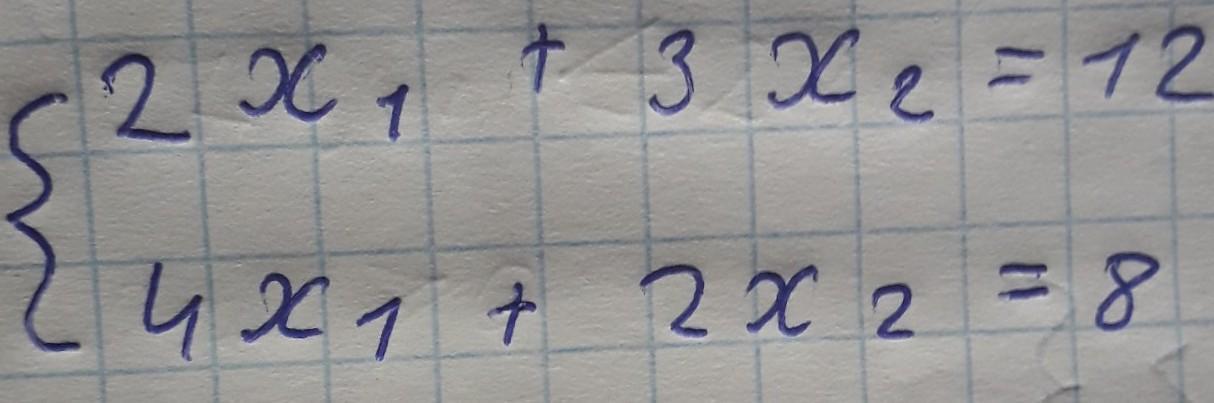 2x₁ + 3x₂ = 12
4x₁ + 2x₂ = 8